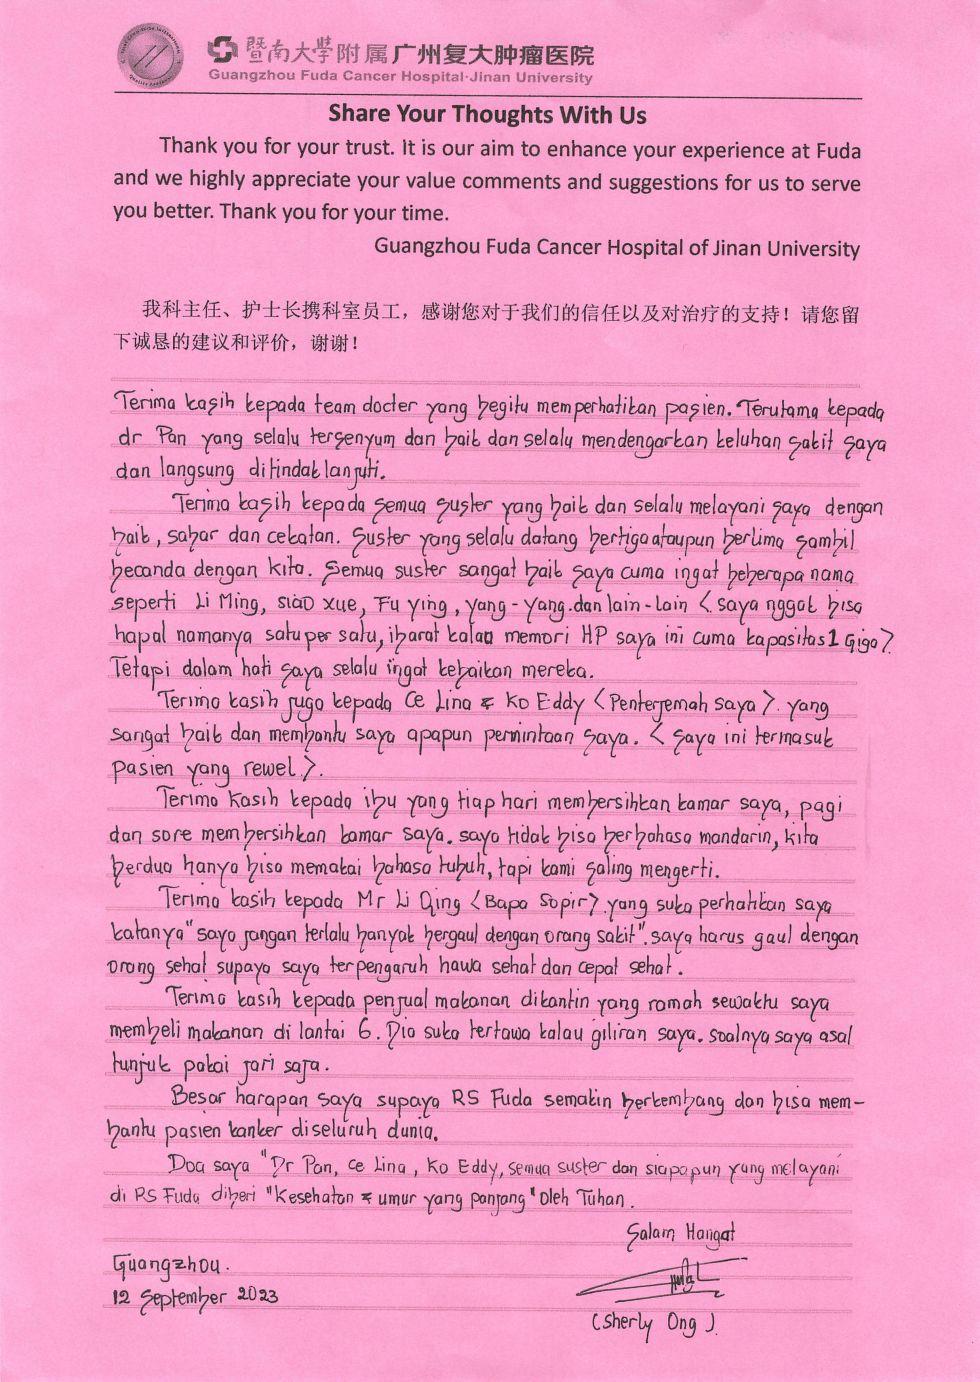 暨南大学附属广州复大肿瘤医院
Guangzhou Fuda Cancer Hospital·Jinan University
Share Your Thoughts With Us
Thank you for your trust. It is our aim to enhance your experience at Fuda
and we highly appreciate your value comments and suggestions for us to serve
you better. Thank you for your time.
Guangzhou Fuda Cancer Hospital of Jinan University
我科主任、护士长携科室员工，感谢您对于我们的信任以及对治疗的支持！请您留
下诚恳的建议和评价，谢谢！
Terima kasih kepada team docter yang begitu memperhatikan pasien. Terutama kepada
dr Pan yang selalu tersenyum dan baik dan selalu mendengarkan keluhan sakit saya
dan langsung ditindak lanjuti.
Terima kasih kepada semua suster yang baik dan selalu melayani saya dengan
baik, sabar dan cekatan. Suster yang selalu datang bertiga ataupun berlima sambil
becanda dengan kita. Semua suster sangat baik saya cuma ingat beberapa nama
seperti Li Ming, siao xue, Fu ying, yang-yang.dan lain-lain <saya nggak bisa
hapal namanya satu per satu, ibarat kalau memori HP saya ini cuma kapasitas 1 Giga>.
Tetapi dalam hati saya selalu ingat kebaikan mereka.
Terima kasih juga kepada Ce Lina & Ko Eddy <Penterjemah saya>. yang
sangat baik dan membantu saya apapun permintaan saya. <saya ini termasuk
pasien yang rewel>.
Terima Kasih kepada ibu yang tiap hari membersihkan kamar saya, pagi
dan sore membersihkan kamar saya. saya tidak bisa berbahasa mandarin, kita
berdua hanya bisa memakai bahasa tubuh, tapi kami saling mengerti.
Terima kasih kepada Mr Li Qing <Bapa Sopir>. yang suka perhatikan saya
katanya "saya jangan terlalu banyak bergaul dengan orang sakit". saya harus gaul dengan
orang sehat supaya saya terpengaruh hawa sehat dan cepat sehat.
Terima kasih kepada penjual makanan dikantin yang ramah sewaktu saya
membeli makanan di lantai 6. Dia suka tertawa kalau giliran saya. soalnya saya asal
tunjuk pakai jari saja.
Besar harapan saya supaya RS Fuda semakin berkembang dan bisa mem-
bantu pasien kanker diseluruh dunia.
Doa saya "Dr Pan, ce Lina, Ko Eddy, semua suster dan siapapun yang melayani
di RS Fuda diberi "Kesehatan & umur yang panjang" oleh Tuhan.
Salam Hangat
Guangzhou.
12 September 2023
(Sherly Ong).